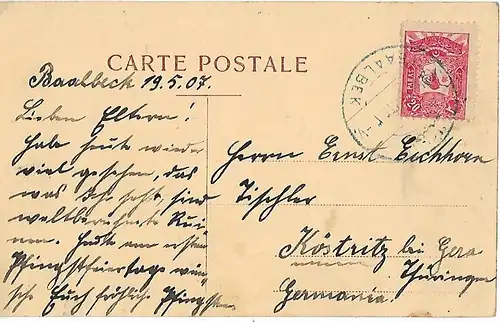 CARTE POSTALE
Baalbeck 19.5.07.
Lieben Eltern!
Habe heute wieder
viel gesehen, das
was Ihr seht, sind
weltberühmte Rui-
nen. Heute am ersten
Pfingstfeiertage wün-
sche Euch fröhliche Pfingsten
BAALBEK
20 PARAS 20
Herrn Ernst Eichhorn
Tischler
Köstritz bei Gera
Thüringen
Germania